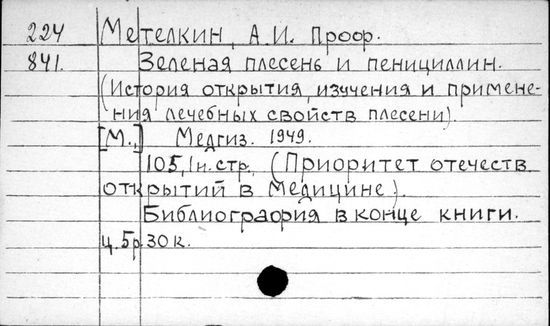 224 Метелкин, А.И. Проф.
841. Зеленая плесень и пенициллин.
(История открытия, изучения и примене-
ния лечебных свойств плесени).
[М.,] Медгиз. 1949.
105,1н.стр. (Приоритет отечеств.
открытий в медицине).
Библиография в конце книги.
ц. 5р.30к.